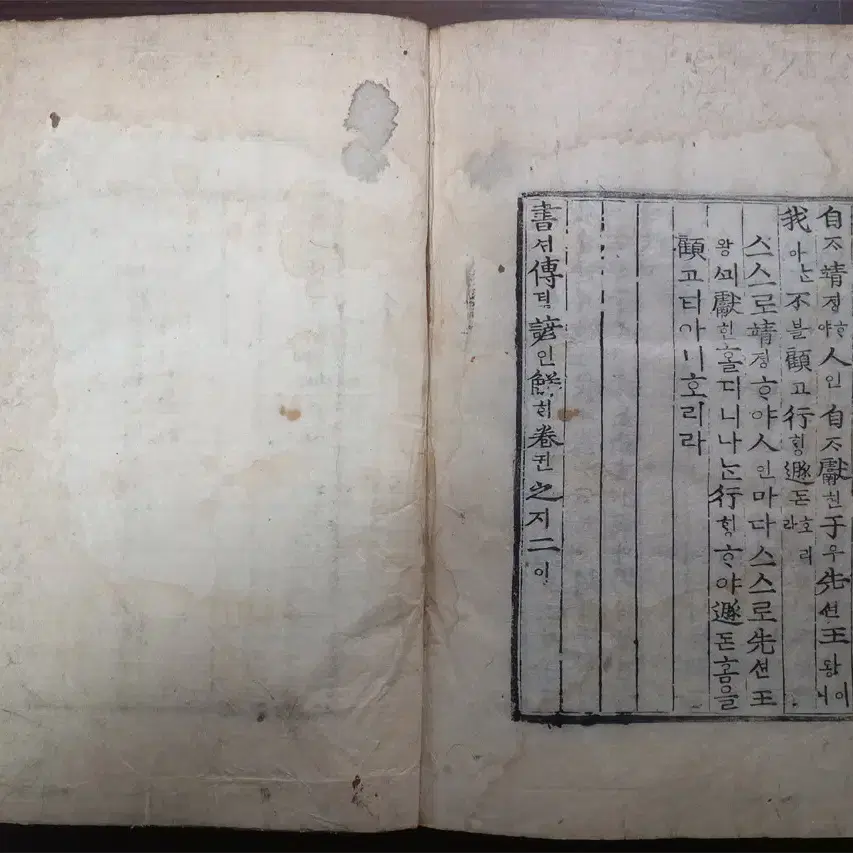 自ᄌᆞ靖졍ᄒᆞ야人인自ᄌᆞ獻헌于우先션王왕이니
我아ᄂᆞᆫ不블顧고行ᄒᆡᆼ遯돈호리라
스스로靖졍ᄒᆞ야人인마다스스로先션王
왕ᄭᅴ獻헌ᄒᆞ올디니나ᄂᆞᆫ行ᄒᆡᆼᄒᆞ야遯돈홈을
顧고티아니호리라
書셔傳뎐諺언解ᄒᆡ卷권之지二이